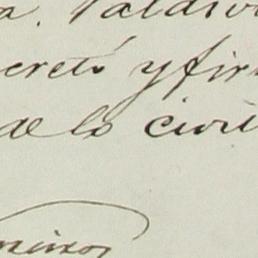 a. Valdivi
cretó y fir
de lo civil